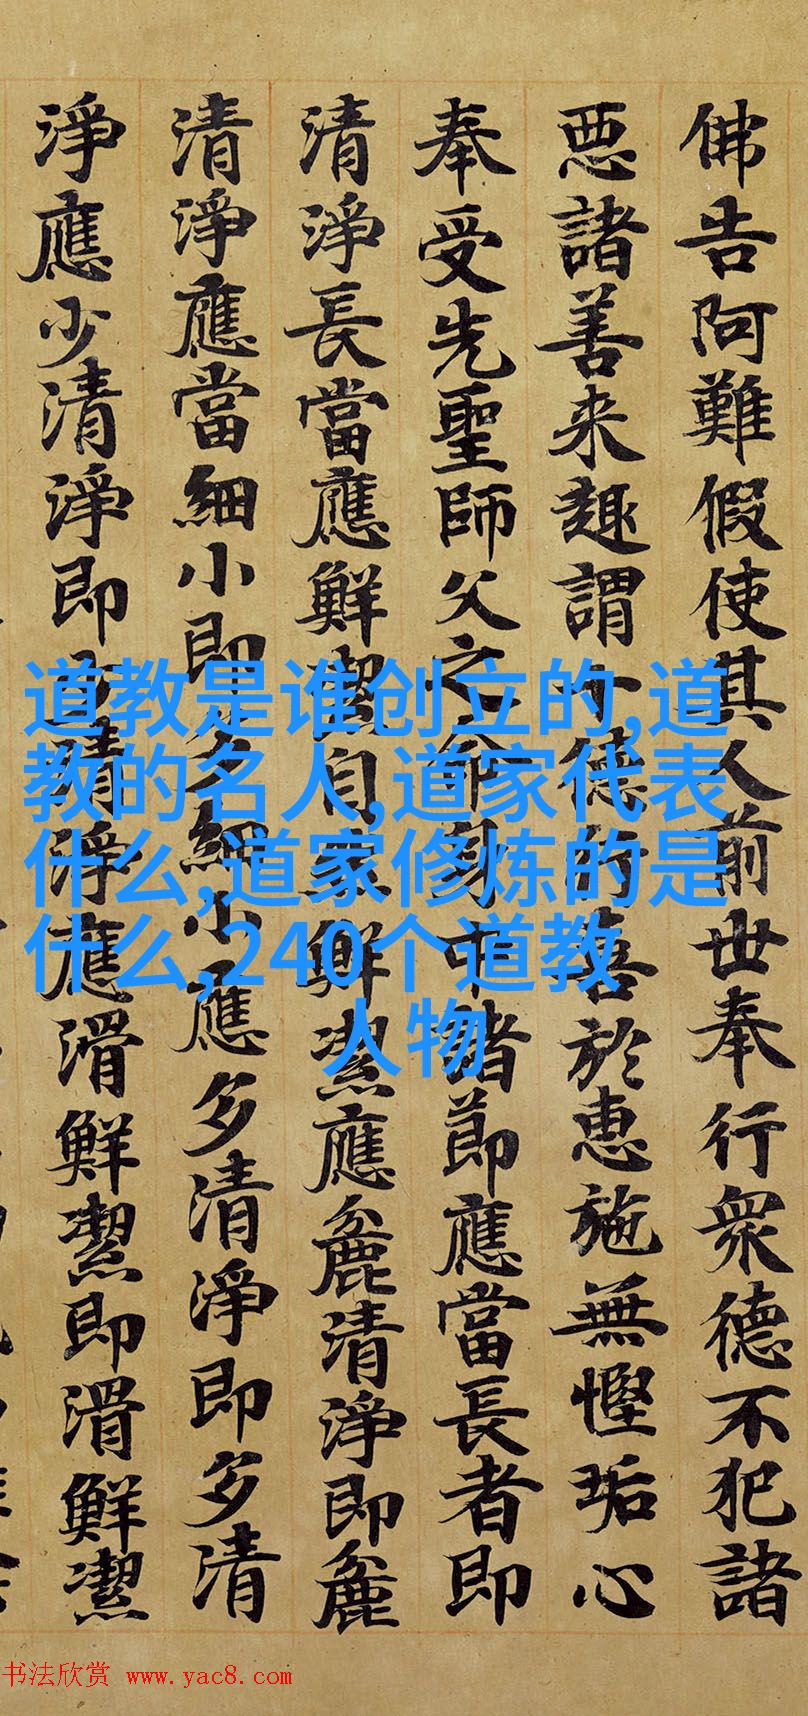 佛告阿難假使其人前世奉行眾德不犯諸
惡諸善来趣謂德喜於惠施無慳垢心
奉受先聖師父之命身中諸節應當長者即
清淨長當應鮮潔自鮮潔應麁清淨即麁
清淨應當細小即細小應多清淨即多清
淨應少清淨即少清淨應滑鮮潔即滑鮮潔
道教是谁创立的,道
教的名人,道家代表
什么,道家修炼的是
什么,240个道教
人物
书法欣赏 www.yac8.com